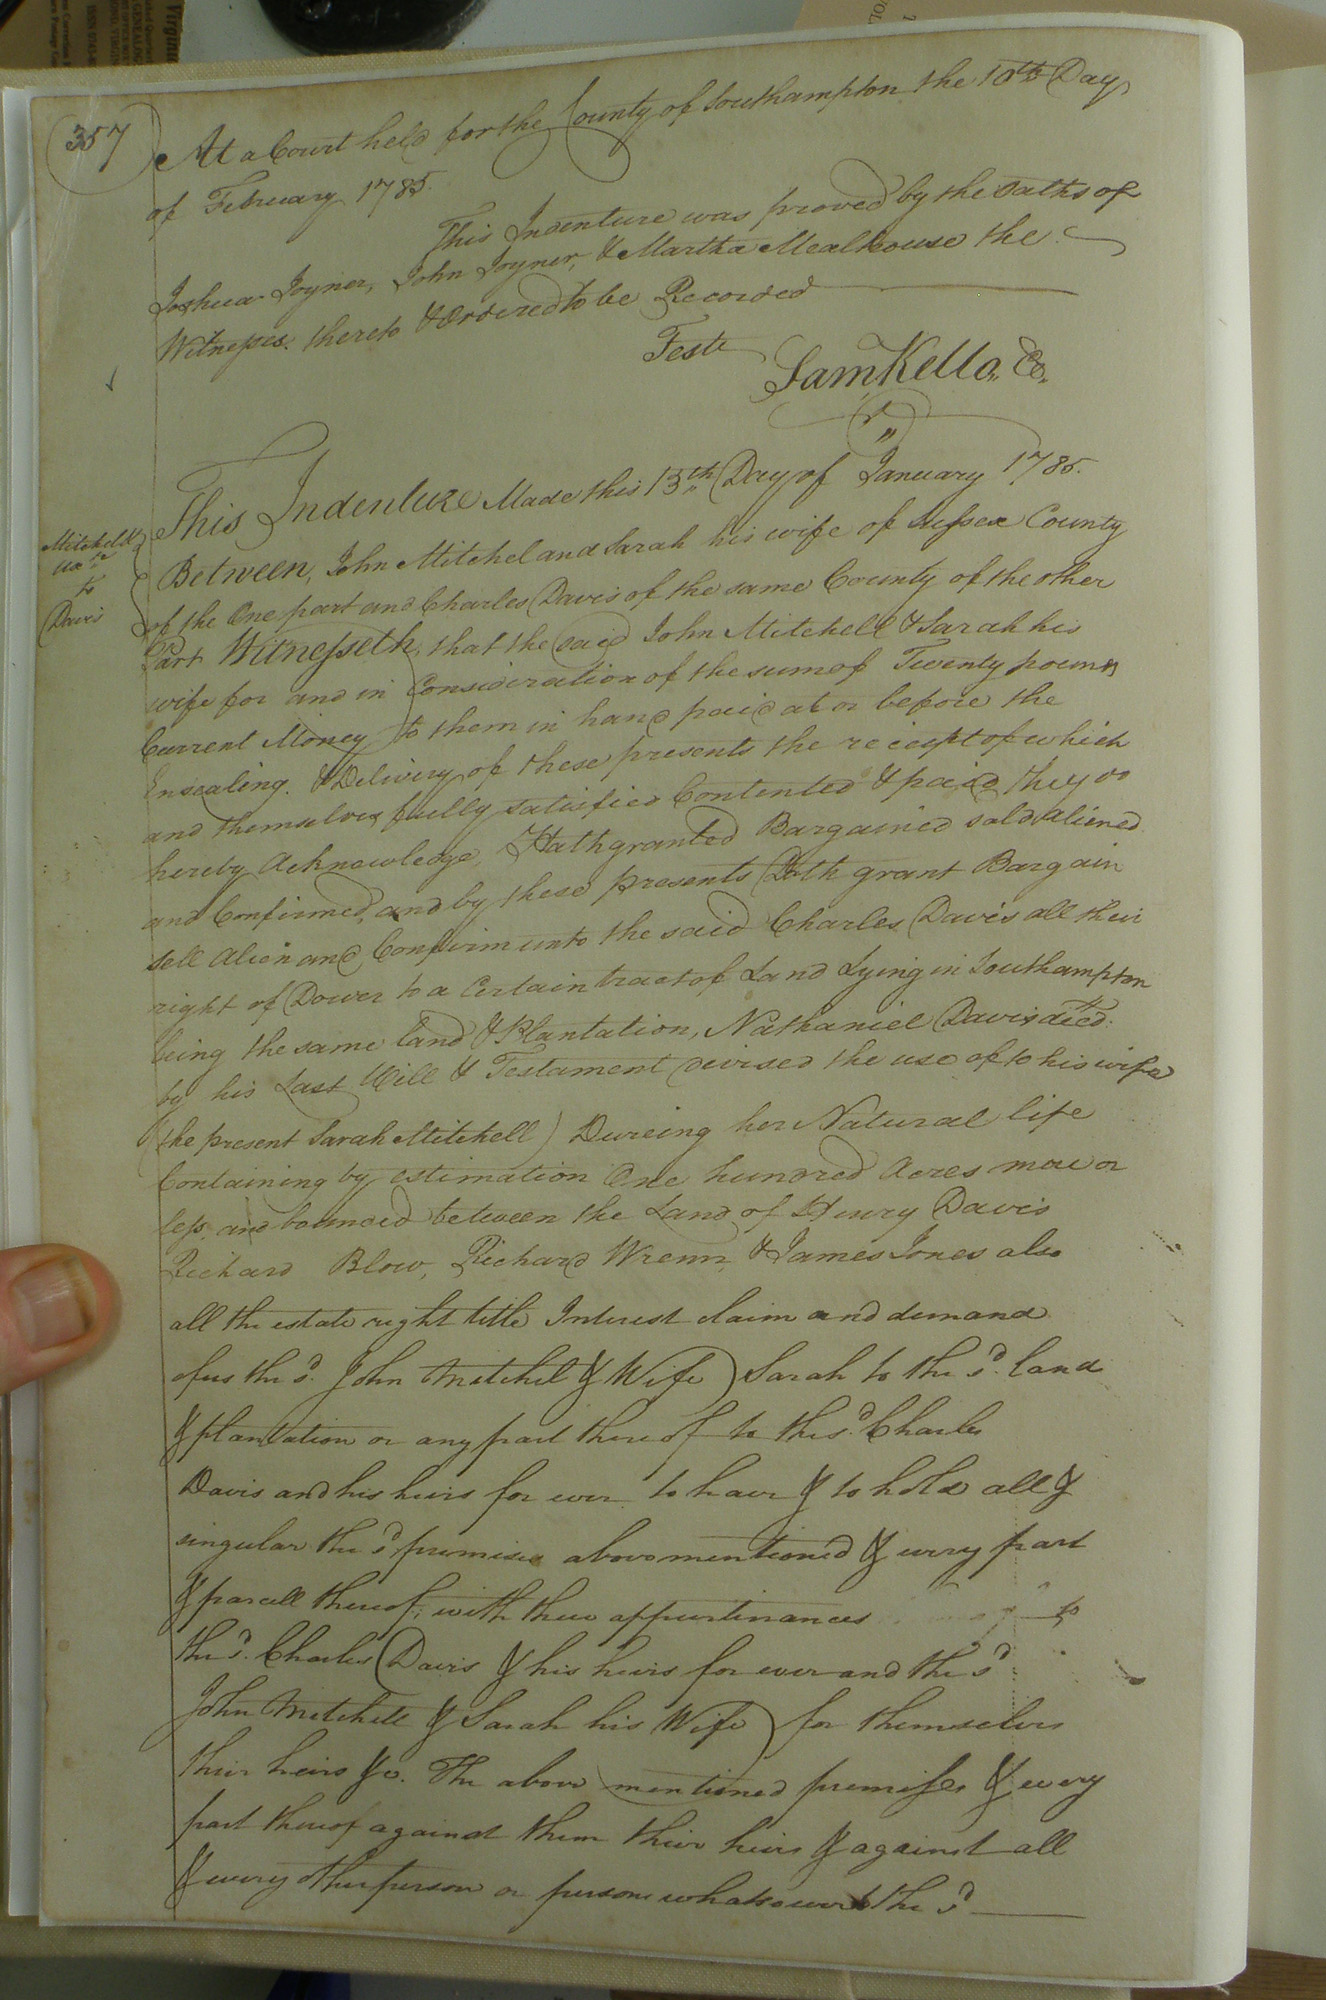 357
At a Court held for the County of Southampton the 10th Day
of February 1785.
This Indenture was proved by the Oaths of
Joshua Joyner, John Joyner, & Martha Mealhouse the
Witnesses thereto & Ordered to be Recorded
Teste
Sam Kello, Co,
Mitchell
uxr
to
Davis
This Indenture Made this 13th Day of January 1785.
Between, John Mitchel and Sarah his wife of Sussex County
of the One part and Charles Davis of the same County of the other
Part Witnesseth, that the said John Mitchell & Sarah his
wife for and in Consideration of the sum of Twenty pounds
Current Money to them in hand paid at or before the
Ensealing & Delivery of these presents the reciept of which
and themselves fully satisfied Contented & paid they do
hereby Acknowledge, Hath granted Bargained sold aliened
and Confirmed, and by these presents Doth grant Bargain
sell Alien and Confirm unto the said Charles Davis all their
right of Dower to a Certain tract of Land Lying in Southampton
being the same land & Plantation, Nathaniel Davis decd.
by his Last Will & Testament devised the use of to his wife
(the present Sarah Mitchell) Dureing her Natural life
Containing by estimation One hundred Acres more or
less, and bounded between the Land of Henry Davis
Richard Blow, Richard Wrenn, & James Jones also
all the estate right title Interest claim and demand
of us the sd. John Mitchel & Wife Sarah to the sd. land
& plantation or any part thereof to the sd. Charles
Davis and his heirs for ever to have & to hold all &
singular the sd premises above mentioned & every part
& parcell thereof, with there appurtinances to
the sd. Charles Davis & his heirs for ever and the sd
John Mitchell & Sarah his Wife for themselves
their heirs &c. The above mentioned premises & every
part thereof against them their heirs & against all
& every other person or persons whatsoever the sd